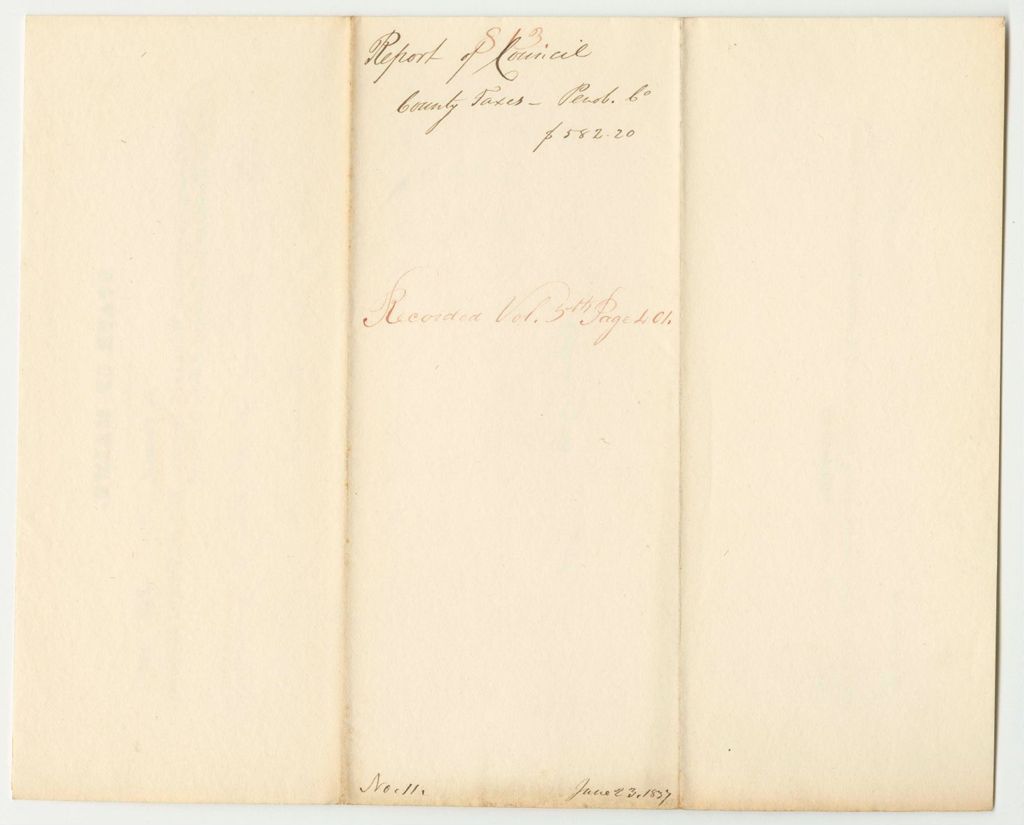 813.
Report of Council
County Taxes - Penob. Co
$582.20
Recorded Vol. 5th Page 401.
No. 11. June 23, 1837